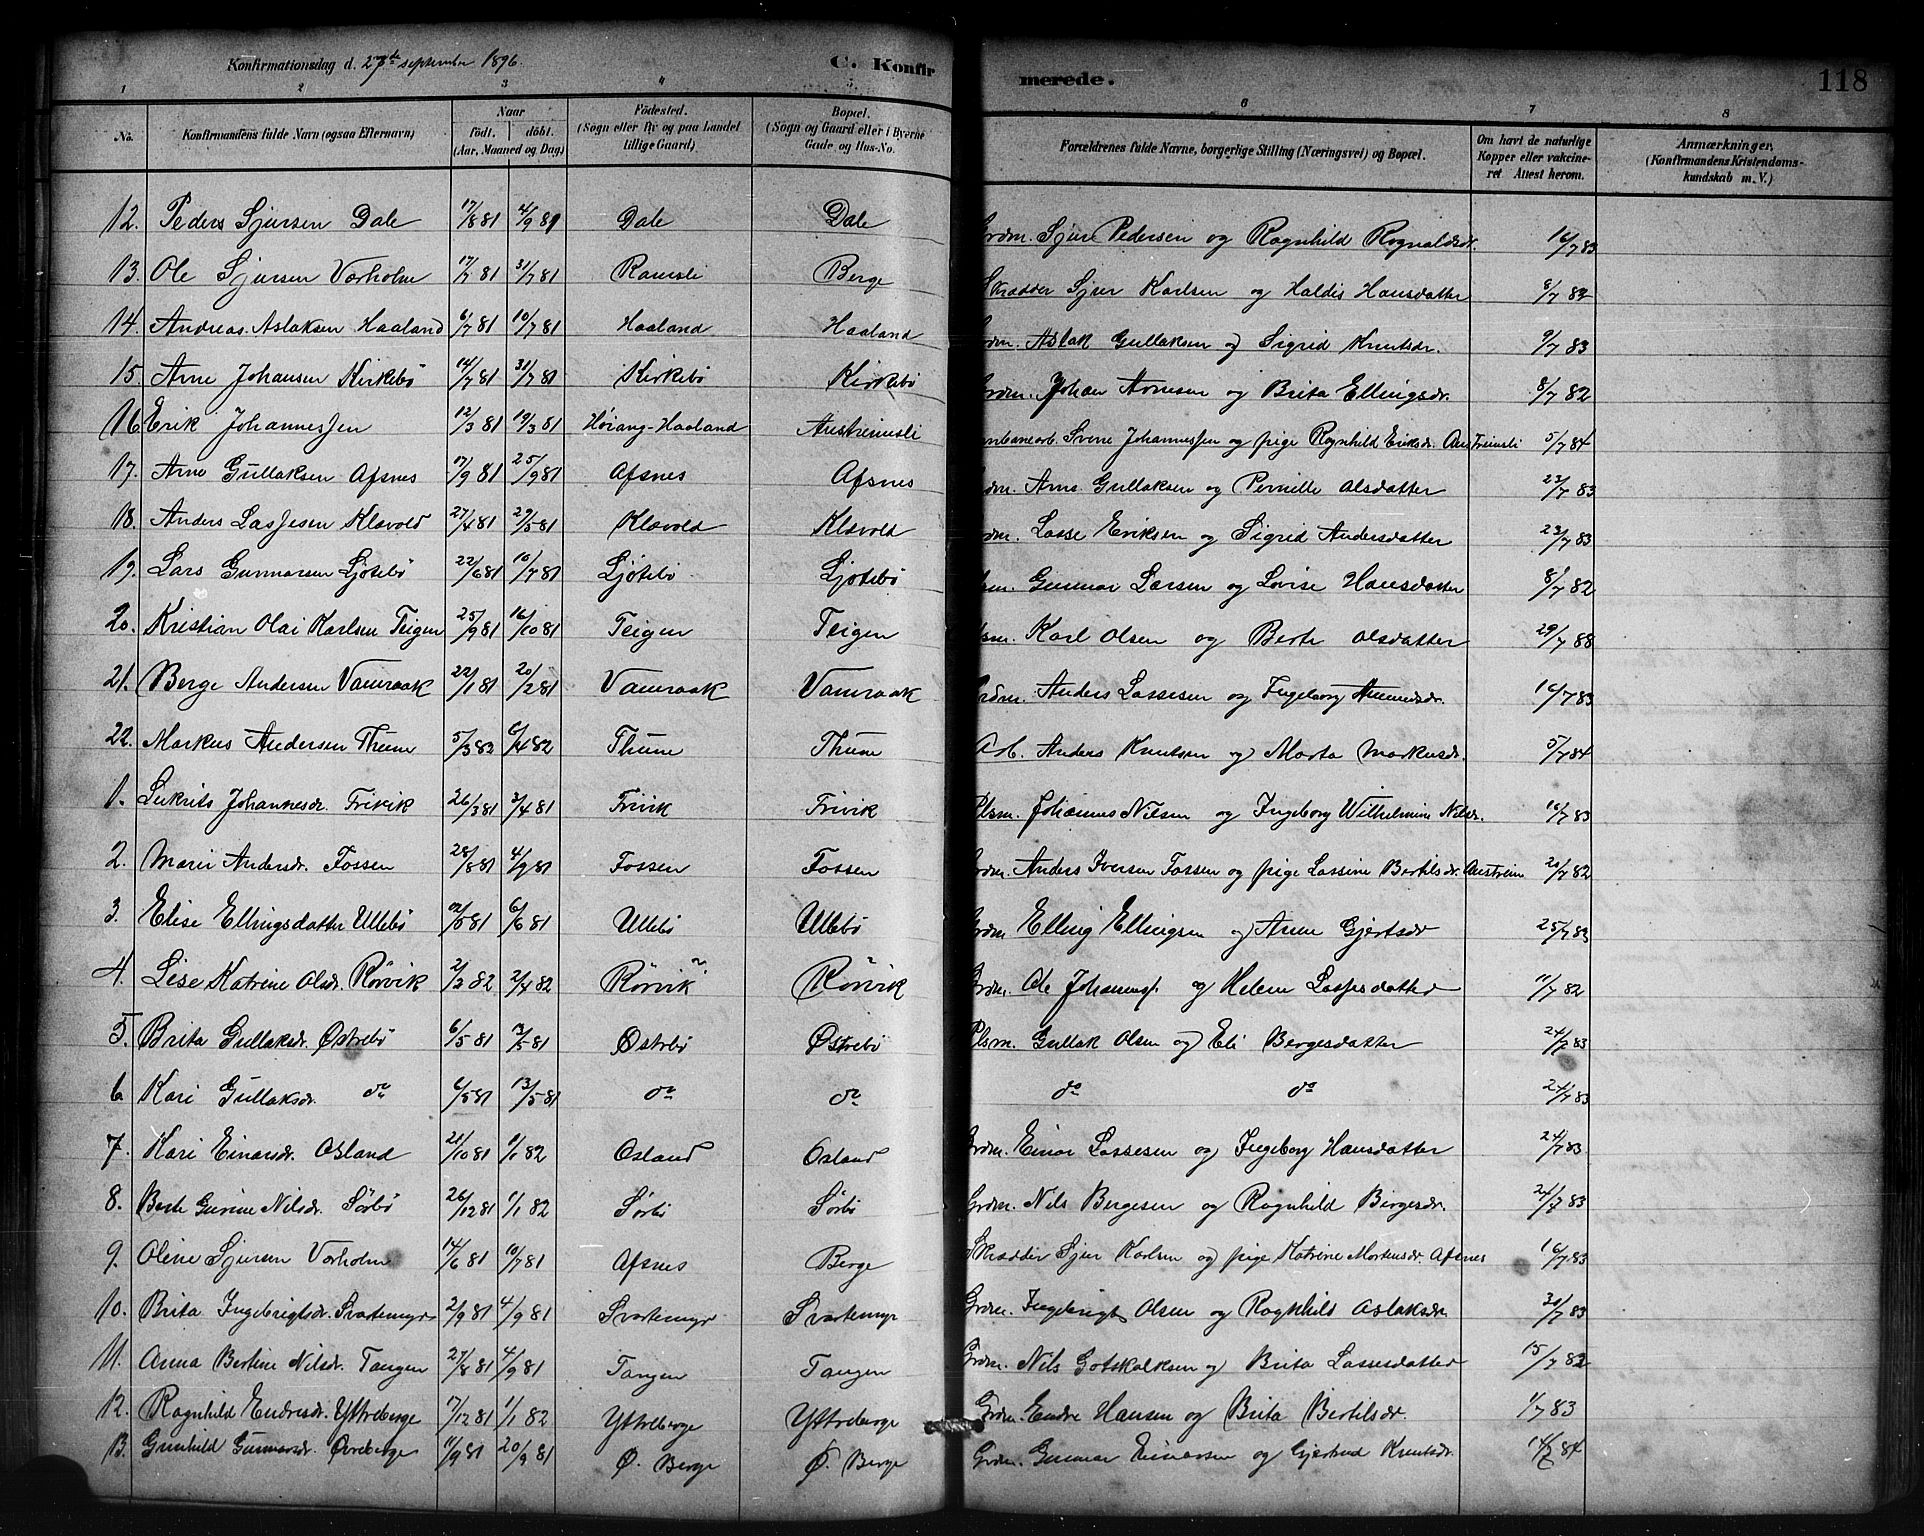 Konfirmationsdag d. 27de september 1896. C. Konfirmerede. 118
1 2 3 4 5 6 7 8
No. Konfirmandens fulde Navn (ogsaa Efternavn) Naar födt. döbt. (Aar, Maaned og Dag) Födested. (Sogn eller By og paa Landet tillige Gaard) Bopæl. (Sogn og Gaard eller i Byerne Gade og Hus-No. Forældrenes fulde Navne, borgerlige Stilling (Næringsvei) og Bopæl. Om havt de naturlige Kopper eller vakcineret Attest herom. Anmærkninger. (Konfirmandens Kristendomskundskab m. V.)
12. Peder Sjursen Dale 17/8 81 4/9 81 Dale Dale Grdm. Sjur Pedersen og Ragnhild Rognaldsdr. 16/7 83
13. Ole Sjursen Varholm 17/7 81 31/7 81 Ramsli Berge Skrædder Sjur Karlsen og Haldis Hansdatter 8/7 82
14. Andreas Aslaksen Haaland 6/7 81 10/7 81 Haaland Haaland Grdm. Aslak Gullaksen og Sigrid Knutsdr. 9/7 83
15. Arne Johansen Kirkebö 14/7 81 31/7 81 Kirkebö Kirkebö Grdm. Johan Arnesen og Brita Ellingsdr. 8/7 82
16 Erik Johannessen 12/3 81 19/3 81 Høiang-Haaland Austreimsli Svene Johannessen og pige Ragnhild Eriksdr. Austreimsli 5/7 84
17. Arne Gullaksen Afsnes 17/9 81 25/9 81 Afsnes Afsnes Grdm. Arne Gullaksen og Pernille Olsdatter 22/7 83
18. Anders Lassesen Klævold 27/4 81 29/5 81 Klævold Klævold Grdm. Lasse Eriksen og Sigrid Andersdatter 23/7 83
19. Lars Gunnarsen Ljötebö 22/6 81 10/7 81 Ljötebö Ljotebö Gunnar Larsen og Lovise Hansdatter 8/7 82
20. Kristian Olai Karlsen Teigen 25/9 81 16/10 81 Teigen Teigen Karl Olsen og Berte Olsdatter 29/7 88
21. Berge Andersen Vamraak 22/1 81 20/2 81 Vamraak Vamraak Grdm. Anders Lassesen og Ingeborg 16/7 83
22. Markus Andersen Thune 5/3 82 6/4 82 Thune Thune Arb. Anders Knutsen og Marta Markusdr. 5/7 84
1. Johannesdr. Trivik 26/3 81 3/4 81 Trivik Trivik Plsm. Johannes Nilsen og Ingeborg Wilhelmine Nilsdr. 16/7 83
2. Marie Andersdr. Fossen 28/8 81 4/9 81 Fossen Fossen Grdm. Anders Iversen Fossen og pige Lassine Bertilsdr. Austreim 20/7 82
3. Elise Ellingsdatter Ullebö 6/6 81 Ullebö Ullebö Grdm Elling Ellingsen og Anne Gjertsdr 25/7 83
4. Lise Katrine Olsdr. Rørvik 2/4 82 Rørvik Rørvik Grdm. Ole Johanness. og Helene Lassesdatter 11/7 82
5. Brita Gullaksdr. Østrebö 6/5 81 Østrebö Østrebö Plsm. Gullak Olsen og Eli Bergesdatter 24/7 83
6. Kari Gullaksdr. do 6/5 81 13/5 81 do do do do 24/7 83
7. Kari Einarsdr. Osland 21/10 81 1/1 82 Osland Osland Grdm. Einar Lassesen og Ingeborg Hansdatter 24/7 83
8. Berte Gurine Nilsdr. Sörbö 26/12 81 1/1 82 Sörbö Sörbö Grdm. Nils Bergesen og Ragnhild Bergesdr. 24/7 83
9. Oline Sjursen Varholm 14/6 81 10/7 81 Afsnes Berge Skrædder Sjur Karlsen og pige Katrine Mortensdr. Afsnes 16/7 83
10. Brita Ingebrigtsdr. Svartemyr 2/9 81 4/9 81 Svartemyr Svartemyr Grdm. Ingebrigt Olsen og Ragnhild Aslaksdr. 30/7 83
11. Anna Bertine Nilsdr. Tangen 27/8 81 4/9 81 Tangen Tangen Grdm. Nils Gotskalksen og Brita Lassesdatter 15/7 82
12. Ragnhild Endresdr. Yttreberge 17/12 81 1/1 82 Yttreberge Yttreberge Grdm. Endre Hansen og Brita Bertilsdr. 1/7 83
13. Gunhild Gunnarsdr. Øvreberge 11/9 81 20/9 81 Ø. Berge Ø. Berge Grdm. Gunnar Einarsen og Gjertrud Knutsdr. 84